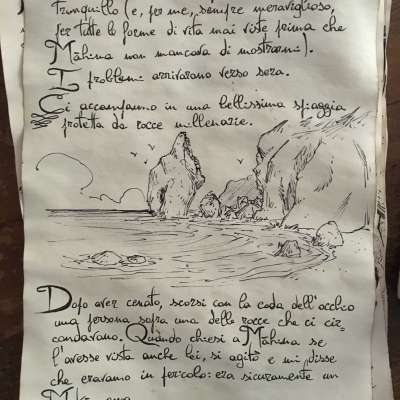 Tranquillo (e, per me, sempre meraviglioso,
per tutte le forme di vita mai viste prima che
Māhina non mancava di mostrarmi).
I problemi arrivarono verso sera.
Ci accampammo in una bellissima spiaggia
protetta da rocce millenarie.
Dopo aver cenato, scorsi con la coda dell'occhio
una persona sopra una delle rocce che ci cir-
condavano. Quando chiesi a Māhina se
l'avesse vista anche lei, si agitò e mi disse
che eravamo in pericolo: era sicuramente un